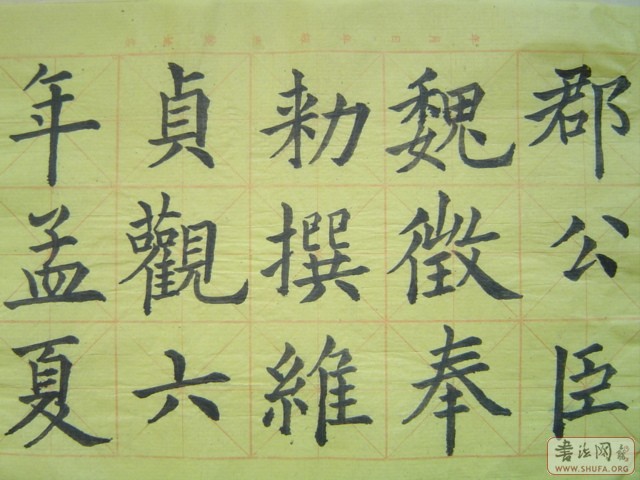 郡公臣
魏徵奉
勑撰維
貞觀六
年孟夏
書法网
WWW.SHUFA.ORG